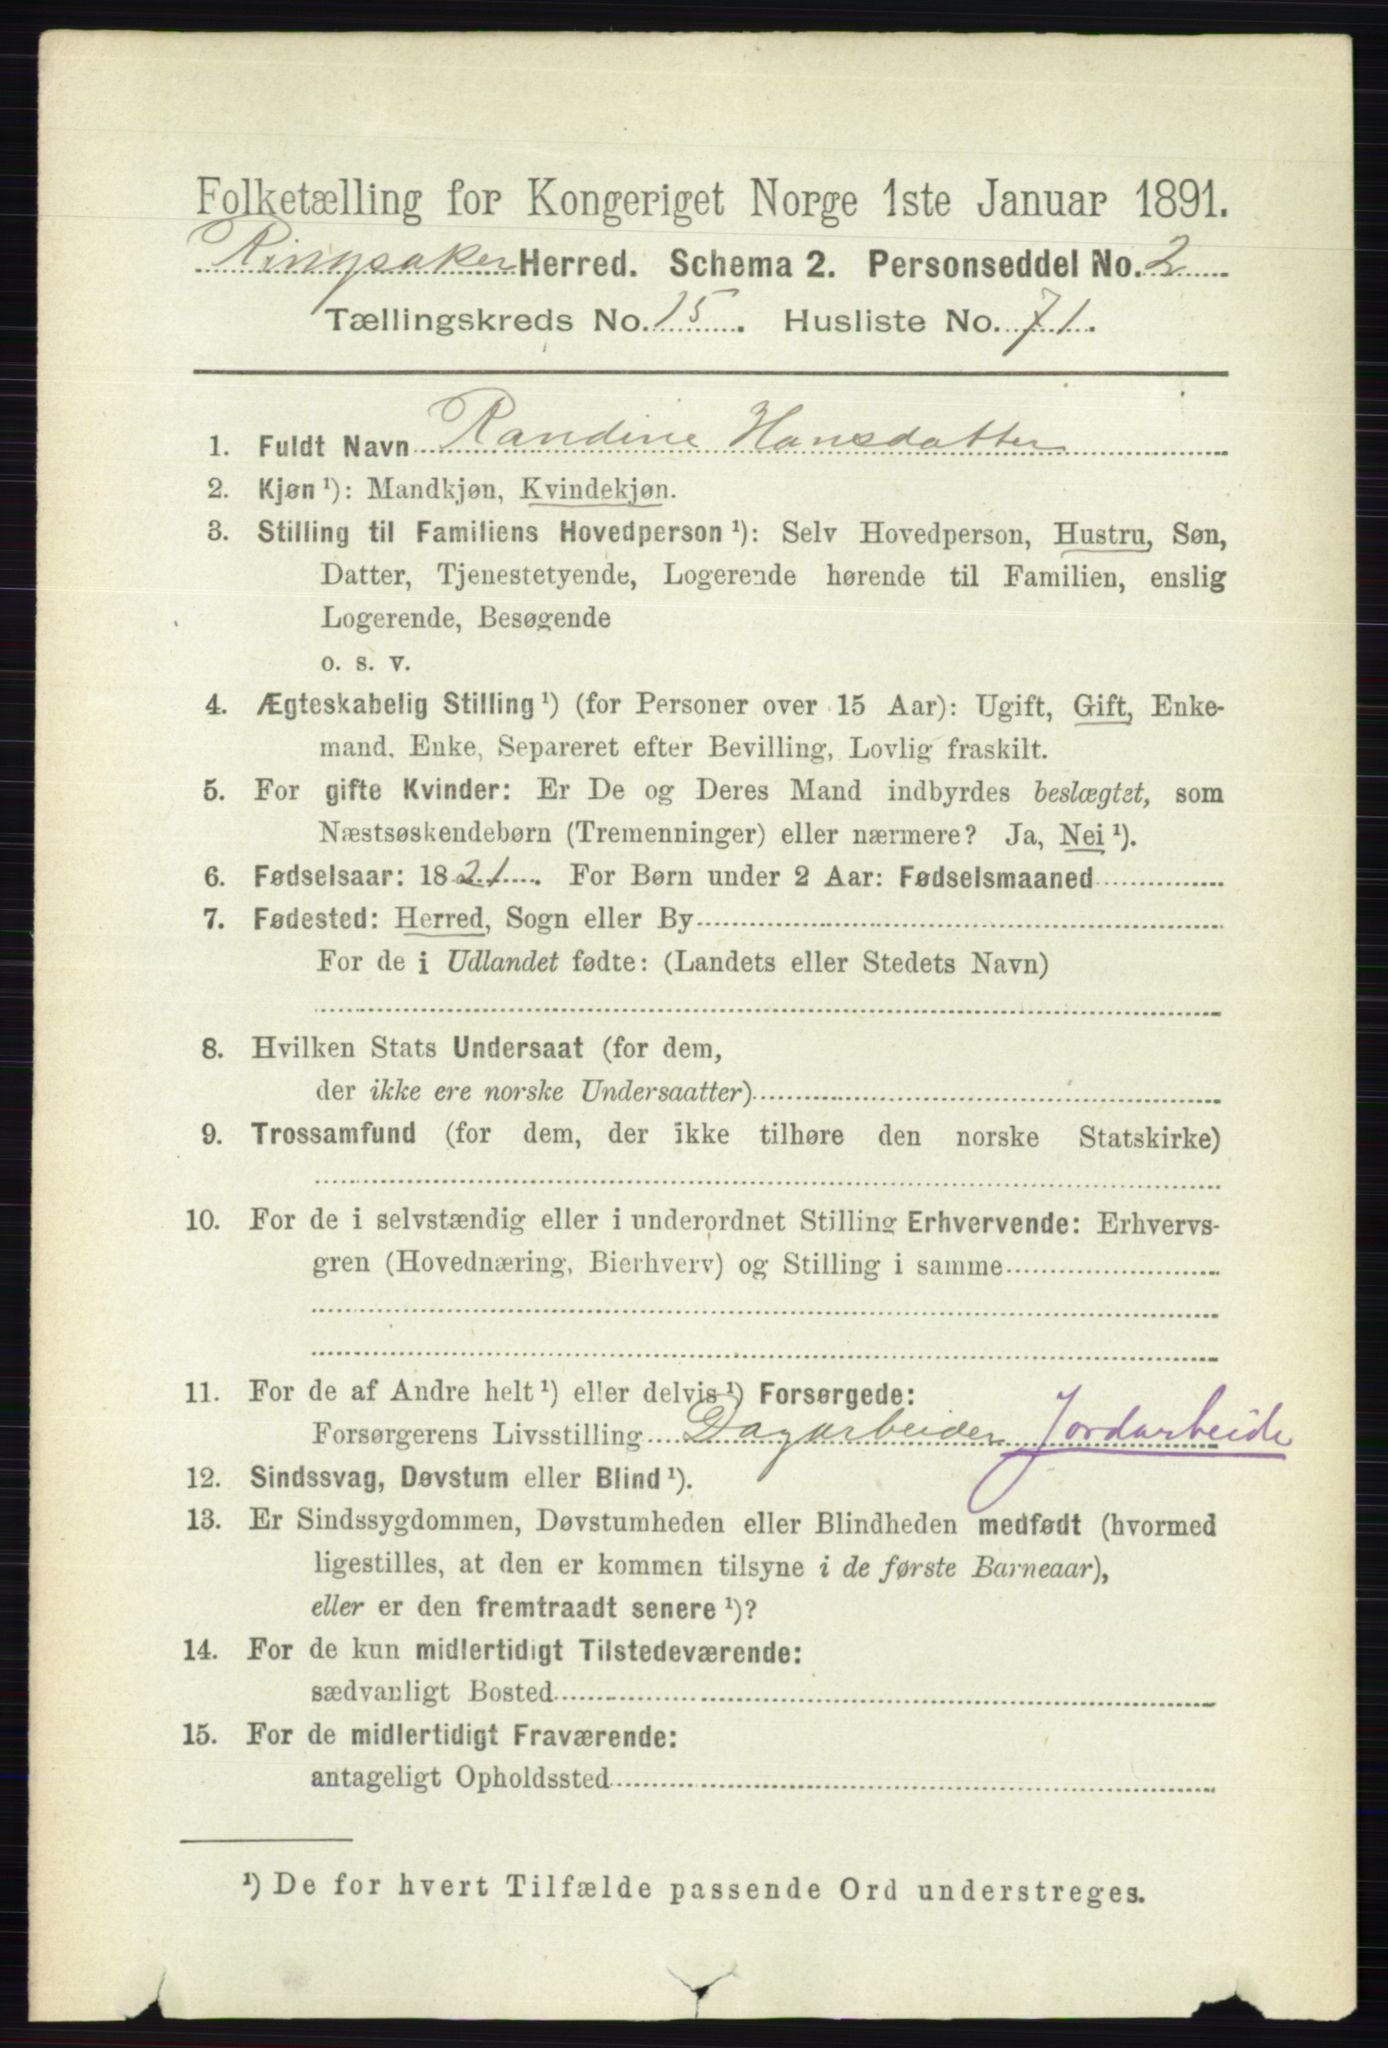 Folketælling for Kongeriget Norge 1ste Januar 1891.
Ringsaker Herred. Schema 2. Personseddel No. 2
Tællingskreds No. 15. Husliste No. 71.
1. Fuldt Navn Randine Hansdatter
2. Kjøn ¹): Mandkjøn, Kvindekjøn.
3. Stilling til Familiens Hovedperson ¹): Selv Hovedperson, Hustru, Søn,
Datter, Tjenestetyende, Logerende hørende til Familien, enslig
Logerende, Besøgende
o. s. v.
4. Ægteskabelig Stilling ¹) (for Personer over 15 Aar): Ugift, Gift, Enke-
mand, Enke, Separeret efter Bevilling, Lovlig fraskilt.
5. For gifte Kvinder: Er De og Deres Mand indbyrdes beslægtet, som
Næstsøskendebørn (Tremenninger) eller nærmere? Ja, Nei ¹).
6. Fødselsaar: 1821. For Børn under 2 Aar: Fødselsmaaned
7. Fødested: Herred, Sogn eller By
For de i Udlandet fødte: (Landets eller Stedets Navn)
8. Hvilken Stats Undersaat (for dem,
der ikke ere norske Undersaatter)
9. Trossamfund (for dem, der ikke tilhøre den norske Statskirke)
10. For de i selvstændig eller i underordnet Stilling Erhvervende: Erhvervs-
gren (Hovednæring, Bierhverv) og Stilling i samme
11. For de af Andre helt ¹) eller delvis ¹) Forsørgede:
Forsørgerens Livsstilling Dagarbeider Jordarbeide
12. Sindssvag, Døvstum eller Blind ¹).
13. Er Sindssygdommen, Døvstumheden eller Blindheden medfødt (hvormed
ligestilles, at den er kommen tilsyne i de første Barneaar),
eller er den fremtraadt senere ¹)?
14. For de kun midlertidigt Tilstedeværende:
sædvanligt Bosted
15. For de midlertidigt Fraværende:
antageligt Opholdssted
¹) De for hvert Tilfælde passende Ord understreges.